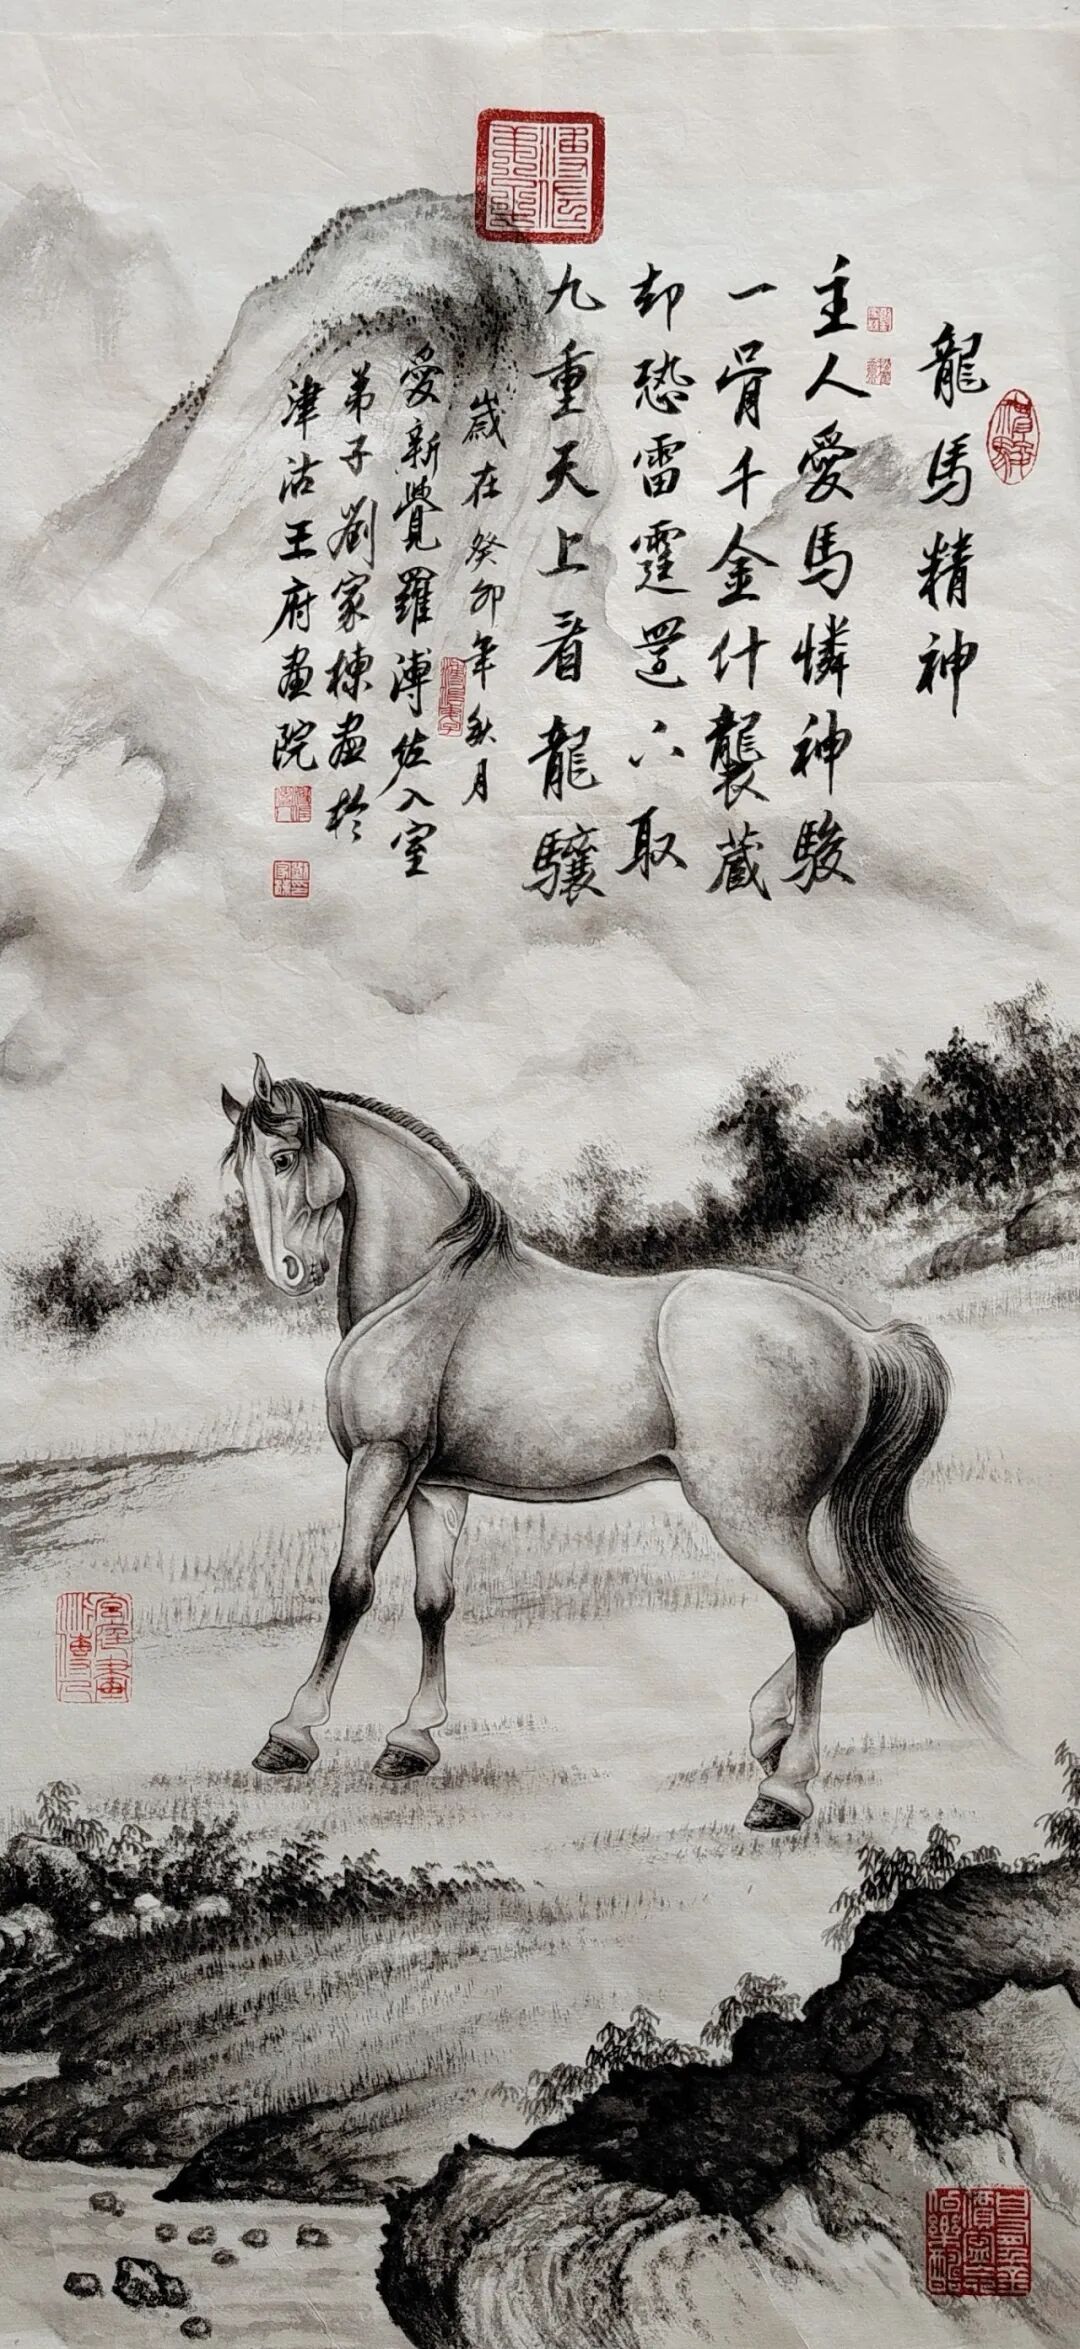 龍馬精神
主人愛馬憐神駿
一骨千金什襲藏
却恐雷霆還下取
九重天上看龍驤
歲在癸卯年秋月
愛新覺羅溥佐入室
弟子劉家棟畫於
津沽王府畫院